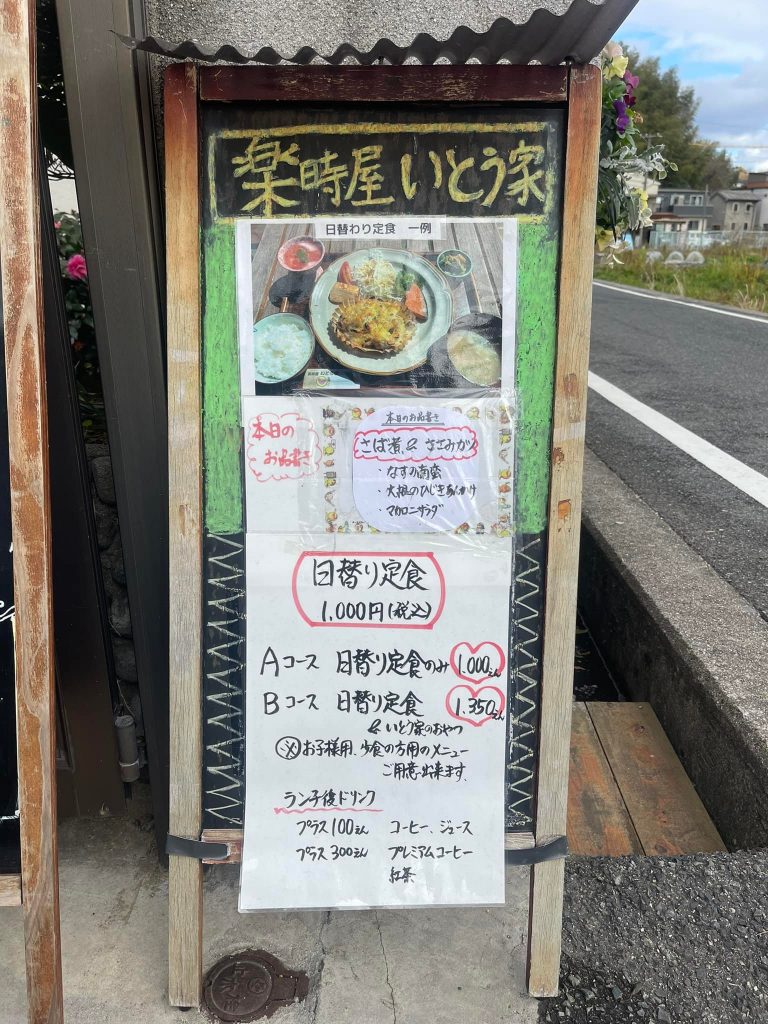 楽時屋 いとう家
日替わり定食 一例
本日の
お品書き
本日のお品書き
さば煮 & ささみカツ
・なすの南蛮
・大根のひじきあんかけ
・マカロニサラダ
日替り定食
1,000円(税込)
Aコース 日替り定食のみ 1.000えん
Bコース 日替り定食 1.350えん
& いとう家のおやつ
※お子様用、少食の方用のメニュー
ご用意出来ます。
ランチ後ドリンク
プラス100えん コーヒー、ジュース
プラス300えん プレミアムコーヒー
紅茶